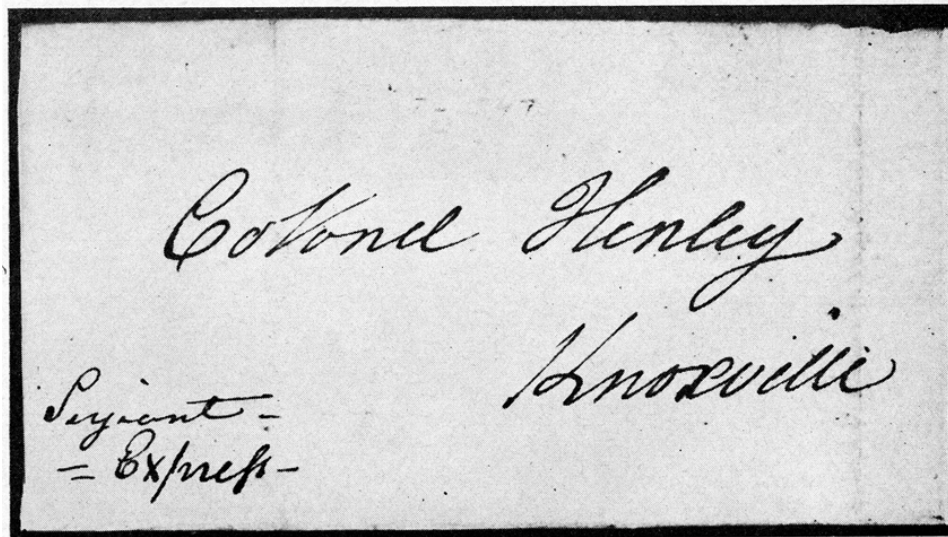 Colonel Henley
Knoxville
Serjant =
= Expreſs -